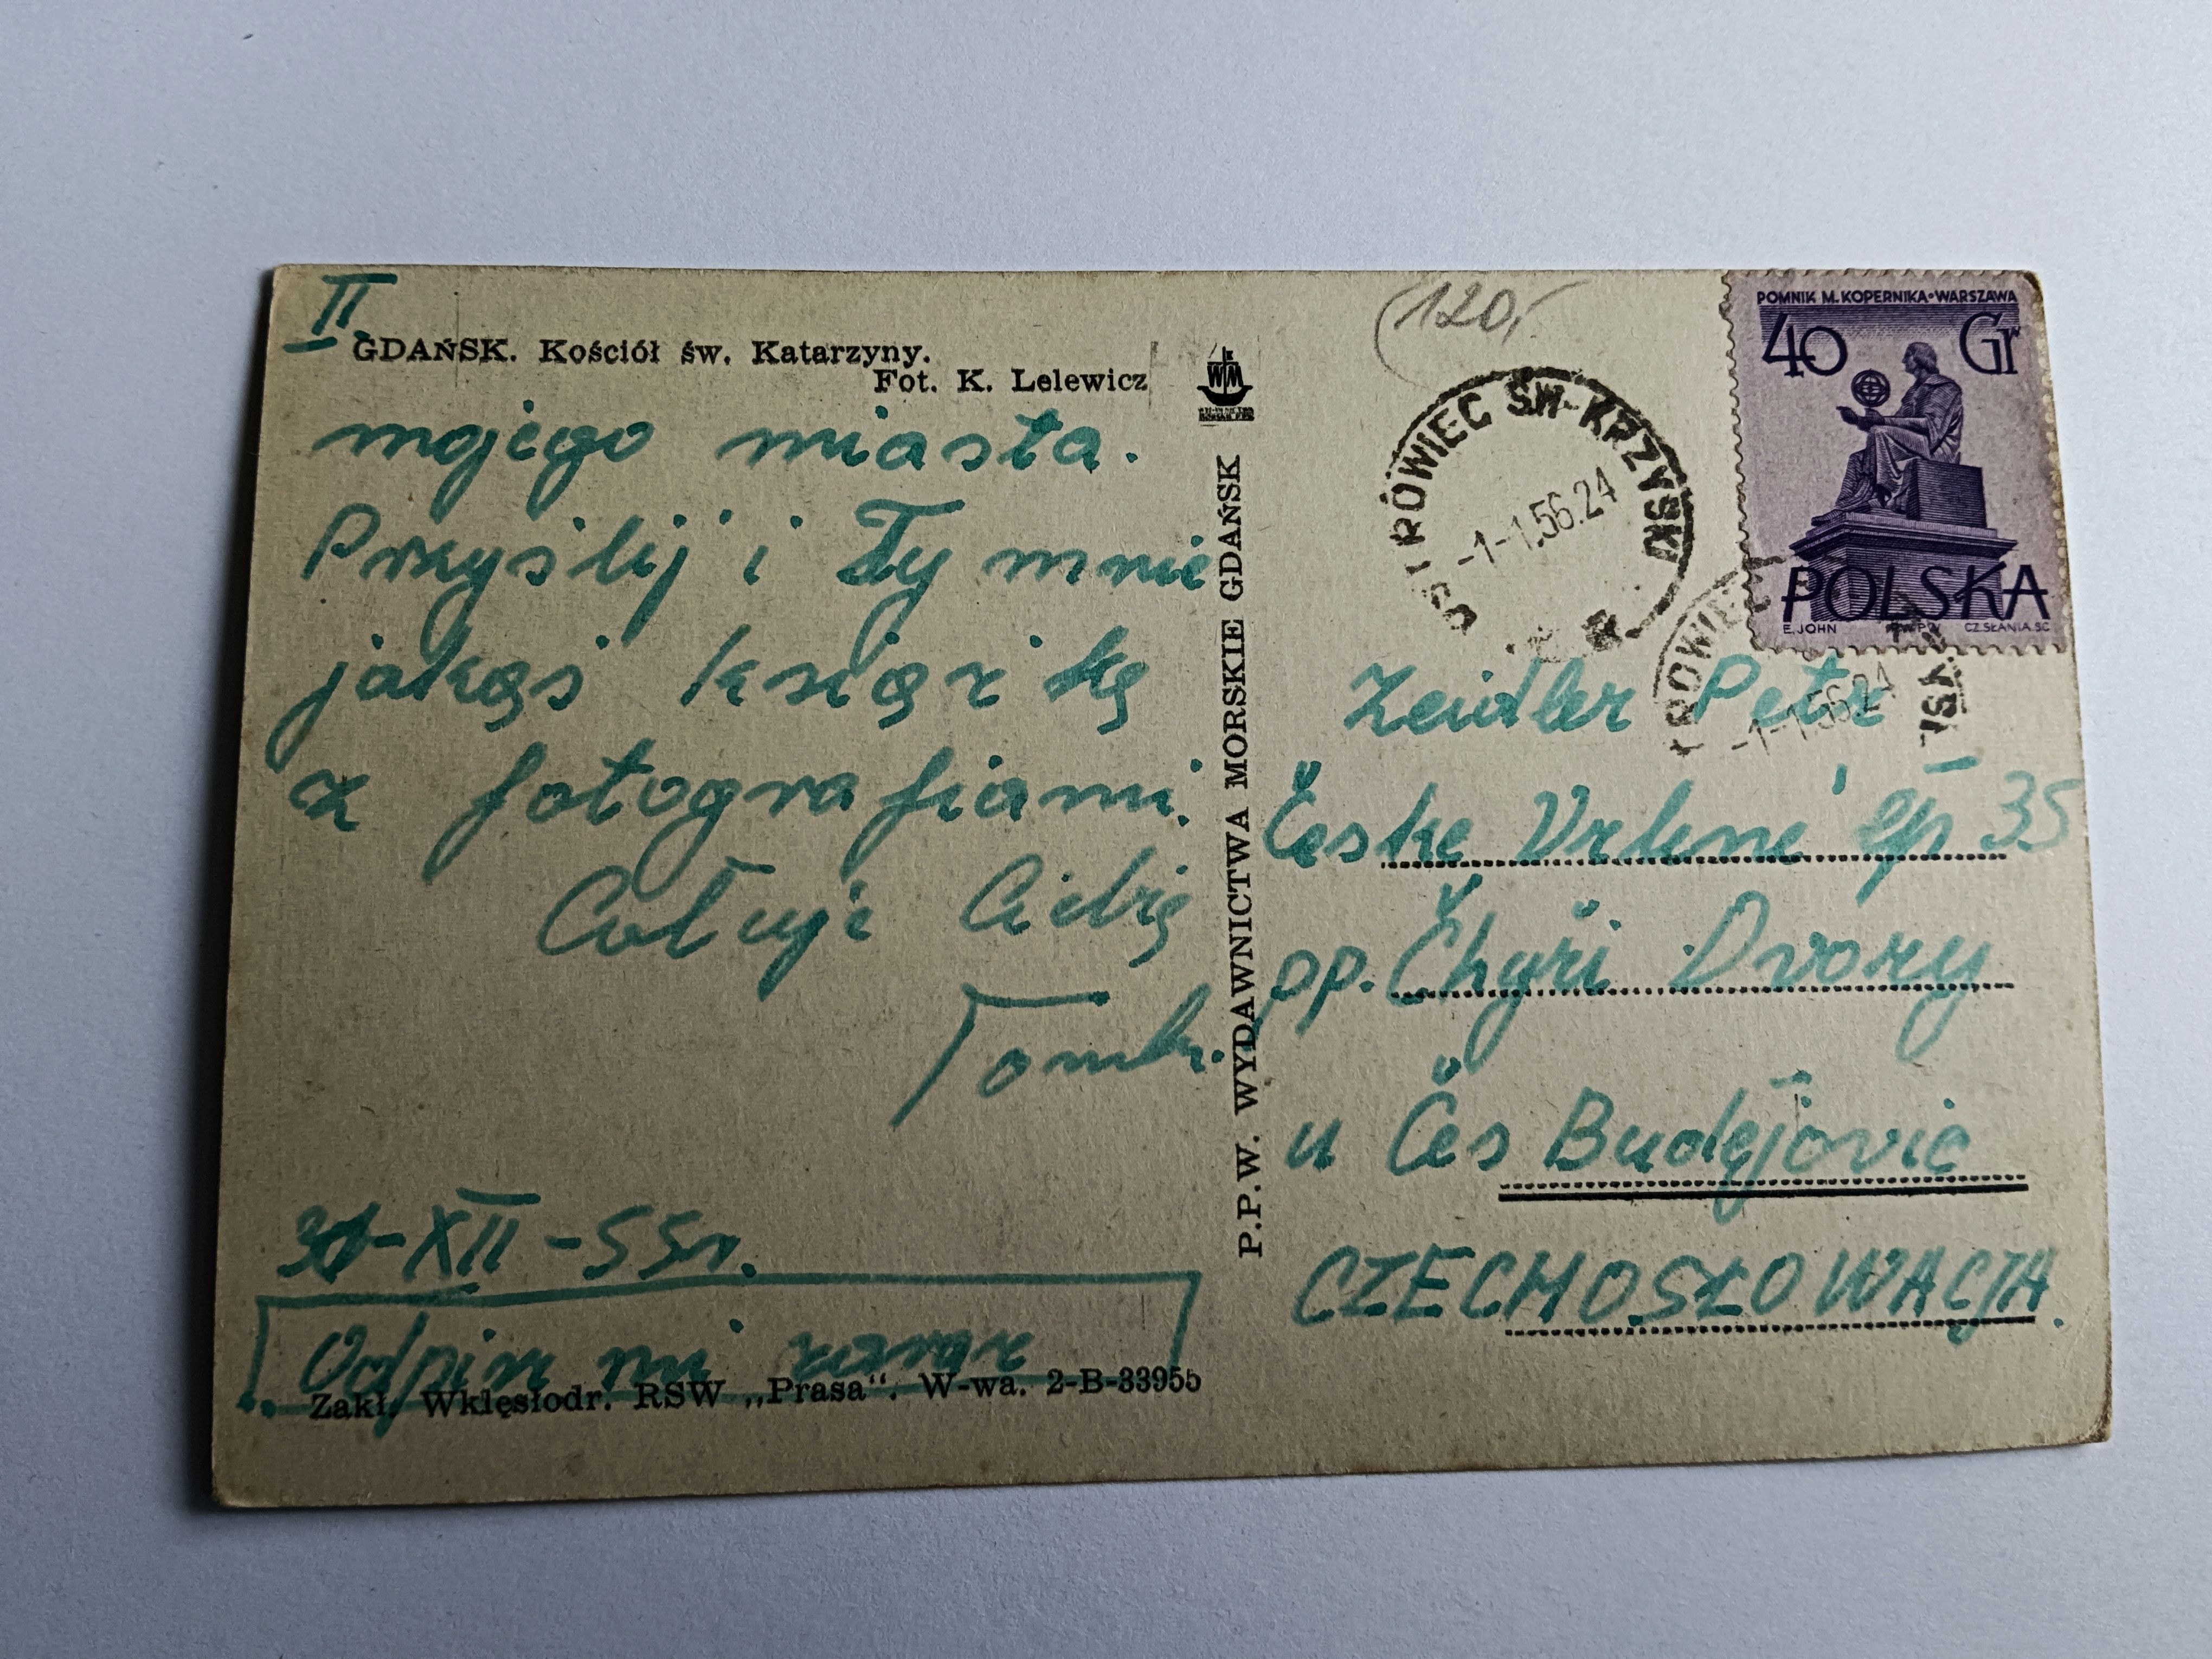 II
GDAŃSK. Kościół św. Katarzyny.
Fot. K. Lelewicz
mojego miasta.
Przyślij i Ty mnie
jakąś książkę
z fotografiami.
Całuję Ciebie
Tomek.
31-XII-55r.
Odpisz mi zaraz
Zakł. Wklęsłodr. RSW „Prasa“. W-wa. 2-B-33955
WM
P.P.W. WYDAWNICTWA MORSKIE GDAŃSK
120,-
OSTROWIEC ŚW-KRZYSKI
-1-1.56.24
POMNIK M. KOPERNIKA•WARSZAWA
40 Gr
POLSKA
E. JOHN CZ.SŁANIA.SC
-1-1.56.24
Zeidler Petr
Česke Vrbné čp 35
pp. Čhyři Dvory
u Čes Budějovic
CZECHOSŁOWACJA.